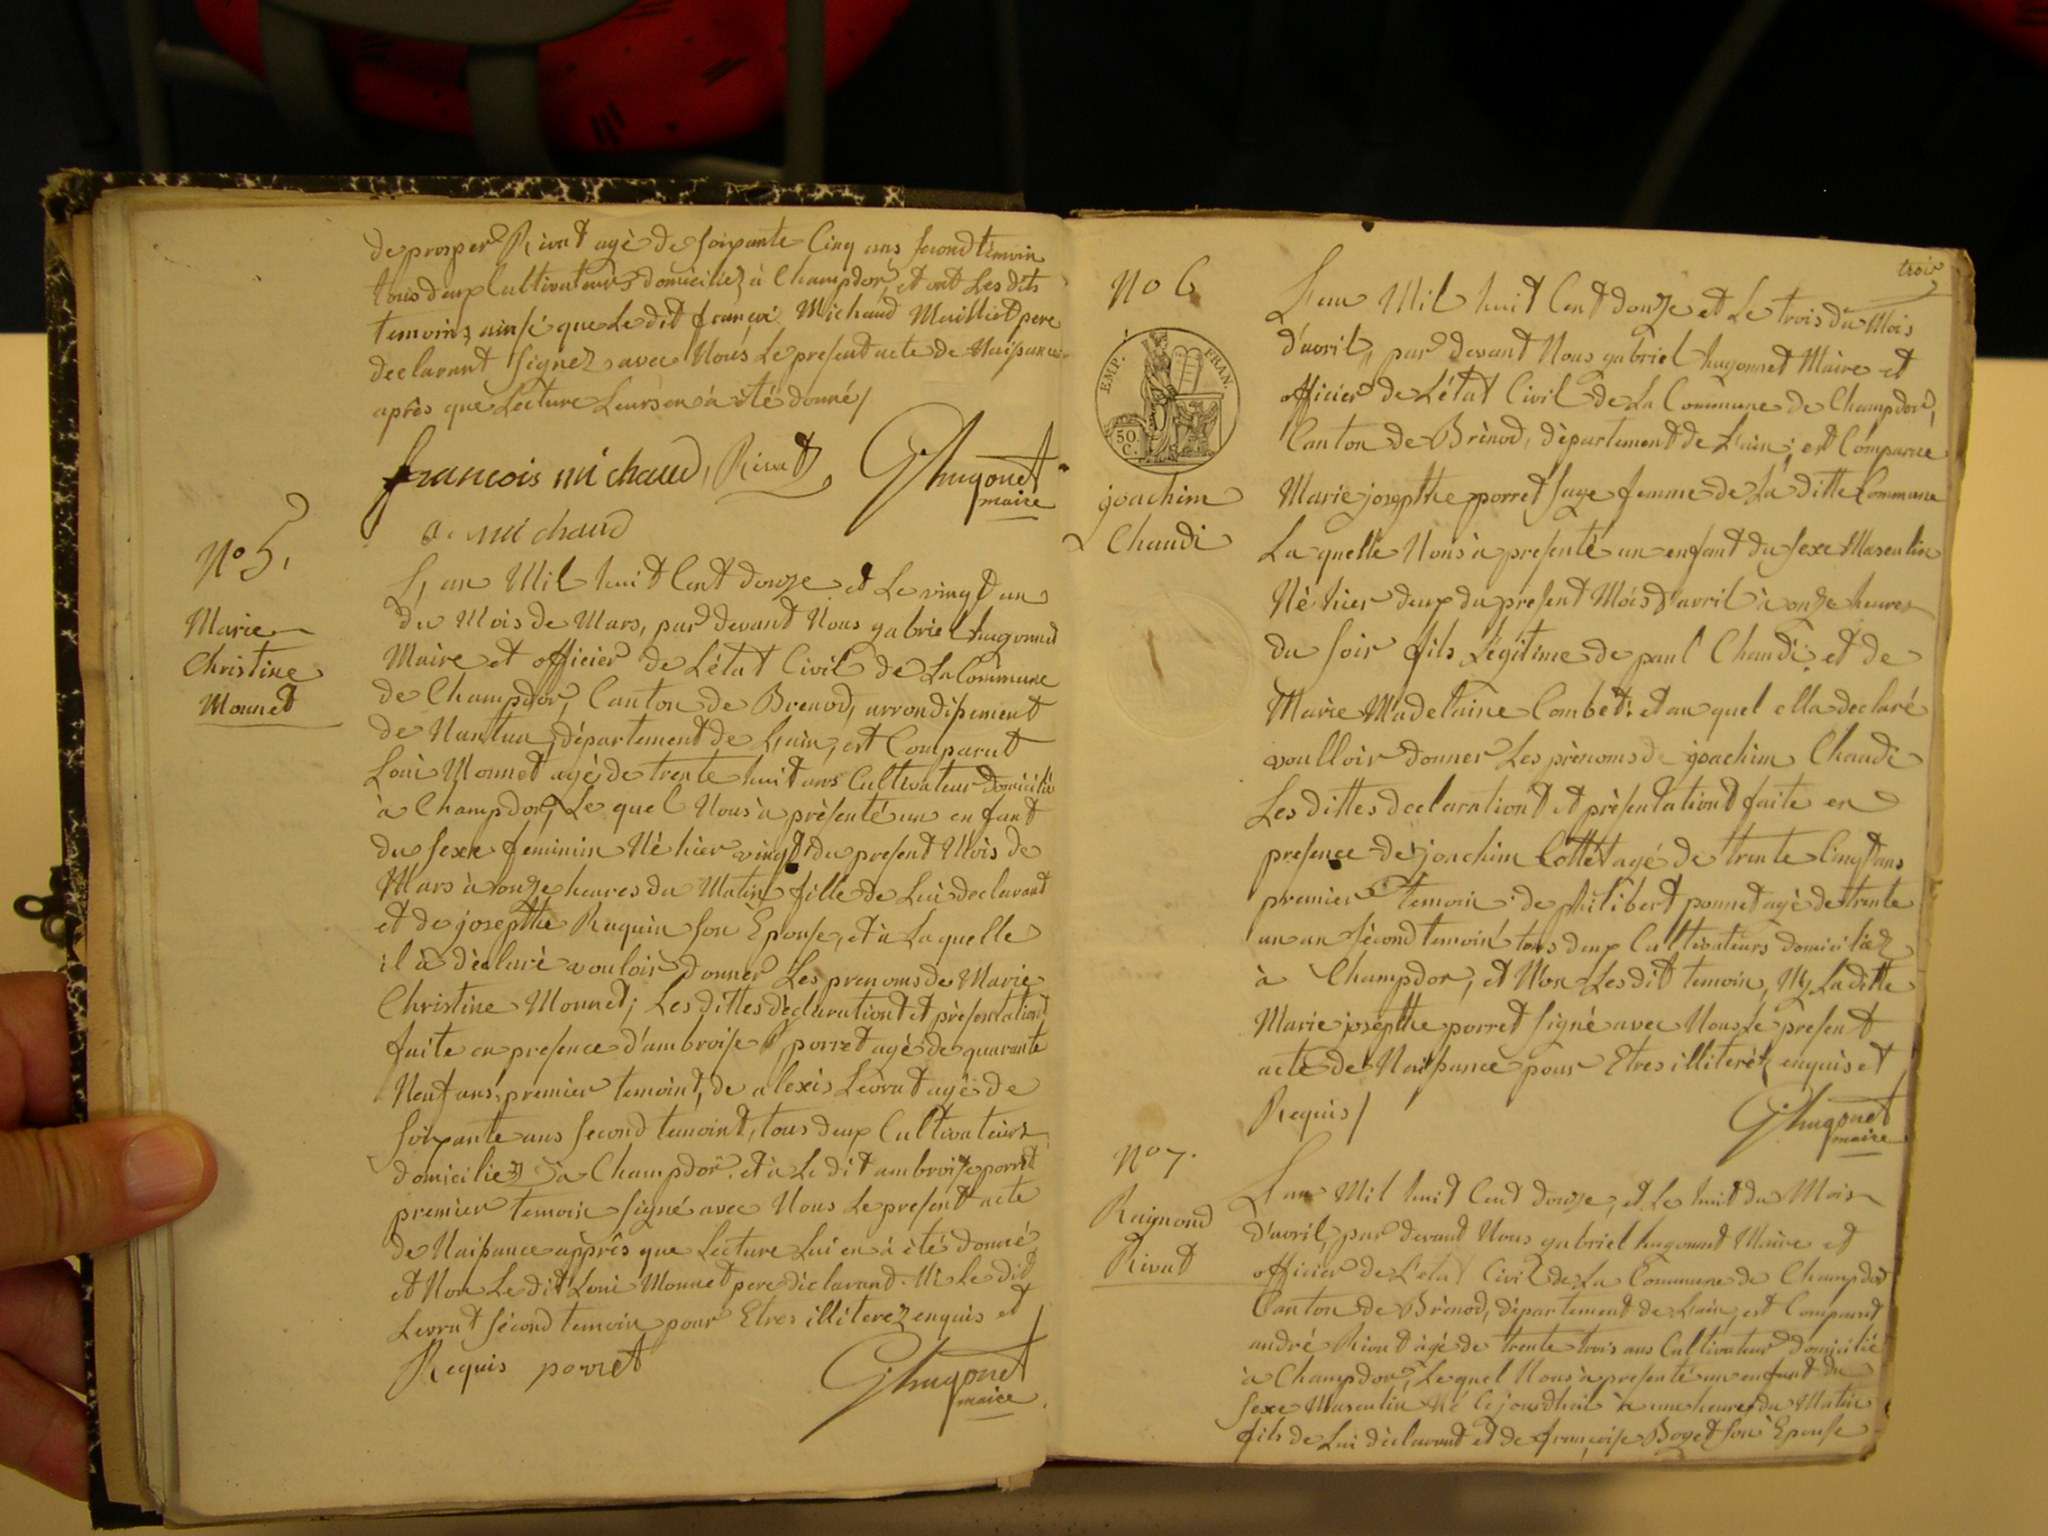 de prosper Rivat agé de soixante Cinq ans second témoin
tous deux Cultivateurs domiciliez à Champdor, et ont Les dits
temoinz ainsi que Le dit françoi Michaud Mailliet pere
declarant signez avec Nous Le present acte de Naissance
après que Lecture Leurs en à été donné/
francois michaud, Rivat G hugonet
maire
a. michaud
No 5.
Marie
Christine
Monnet
L'an Mil huit Cent douze et Le vingt un
du Mois de Mars, par devant Nous gabriel hugonnet
Maire et officier de L'état Civil de La Commune
de Champdor, Canton de Brenod, arrondissement
de Nantua, département de L'ain, est Comparut
Loui Monnet agé de trente huit ans Cultivateur domicilié
à Champdor, Le quel Nous à présenté un enfant
du sexe feminin Né hier vingt du present Mois de
Mars à onze heures du Matin fille de Lui declarant
et de josepthe Ruquin son Epouse, et à Laquelle
il à déclaré vouloir donner Les prenoms de Marie
Christine Monnet; Les dittes déclarationt et présentationt
faite en presence d'ambroise porret agé de quarante
Neuf ans, premier temoint, de alexis Levrat agé de
soixante ans second temoint, tous deux Cultivateurz
domiciliez à Champdor. et à Le dit ambroise porret
premier temoin signé avec Nous Le present acte
de Naissance apprês que Lecture Lui en à été donné
et Non Le dit Loui Monnet pere déclarant. Ni Le dit
Levrat sécond temoin pour Etres illiterez enquis et
Requis porret G hugonet
maire
trois
No 6
EMP. FRAN.
50
C.
joachim
Chaudi
L'an Mil huit Cent douze et Le trois du Mois
d'avril, par devant Nous gabriel hugonnet Maire et
officier de L'état Civil de La Commune de Champdor,
Canton de Brénod, département de L'ain, est Comparue
Marie josepthe porret sage femme de La ditte Commune
La quelle Nous à presenté un enfant du sexe Masculin
Né hier deux du present Mois d'avril à onze heures
du soir fils Légitime de paul Chaudi et de
Marie Madelaine Combet: et au quel ella declaré
voulloir donner Les prénoms de joachim Chaudi
Les dittes declarationt et présentationt faite en
presence de joachim Cottet agé de trente Cinqt ans
premier temoin de philibert ponnet agé de trente
un an sécond temoin tous deux Cultivateurs domiciliez
à Champdor, et Non Les dit temoin, Ny La ditte
Marie josépthe porret signé avec Nous Le present
acte de Naissance pour Etres illiteréz enquis et
Requis/ G hugonet
maire
No 7.
Raymond
Rivat
L'an Mil huit Cent douze, et Le huit du Mois
d'avril, par devant Nous gabriel hugonnet Maire et
officier de L'état Civil de La Commune de Champdor
Canton de Brénod, département de L'ain, est Comparut
andré Rivat agé de trente trois ans Cultivateur domicilié
à Champdor, Lequel Nous à presenté un enfant du
sexe Masculin Né Cejourdhui à une heure du Matin
fils de Lui déclarant et de françoise Boyet son Epouse